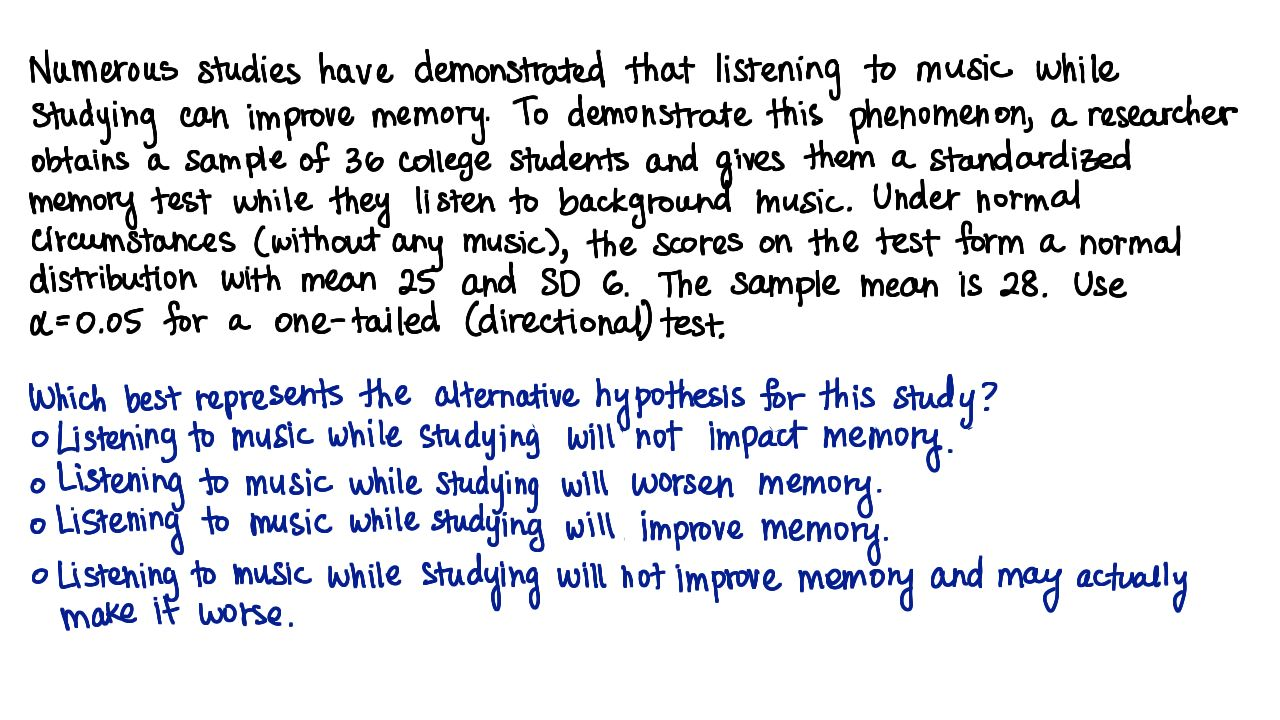 Numerous studies have demonstrated that listening to music while
studying can improve memory. To demonstrate this phenomenon, a researcher
obtains a sample of 36 college students and gives them a standardized
memory test while they listen to background music. Under normal
circumstances (without any music), the scores on the test form a normal
distribution with mean 25 and SD 6. The sample mean is 28. Use
α=0.05 for a one-tailed (directional) test.
Which best represents the alternative hypothesis for this study?
○ Listening to music while studying will not impact memory.
○ Listening to music while studying will worsen memory.
○ Listening to music while studying will improve memory.
○ Listening to music while studying will not improve memory and may actually
make it worse.